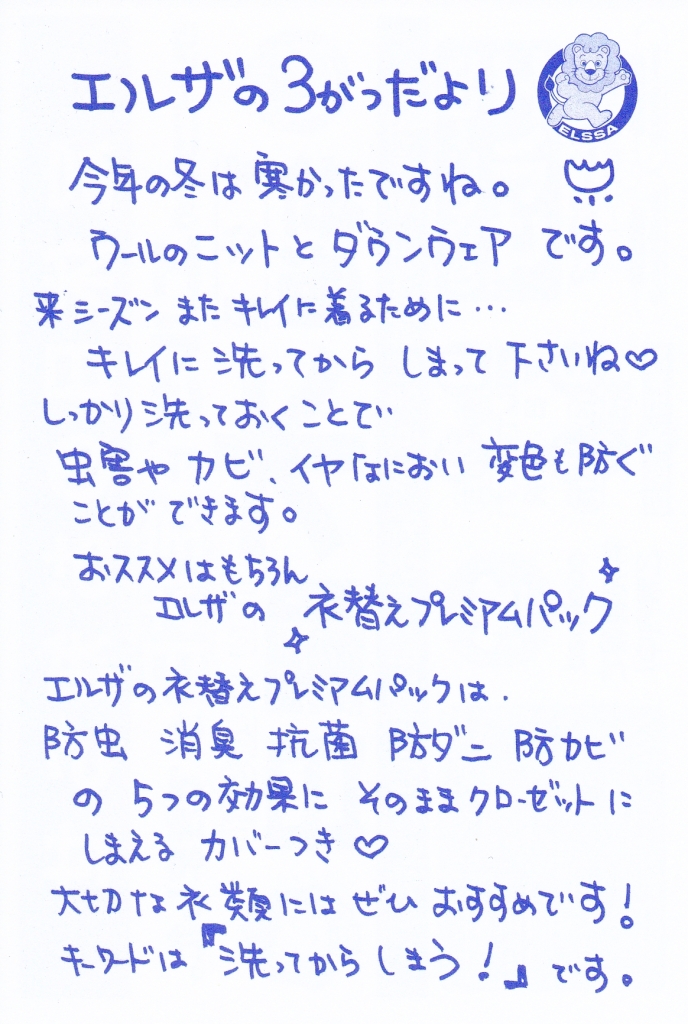 エルザの3がつだより
ELSSA
今年の冬は寒かったですね。
ウールのニットとダウンウェアです。
来シーズンまたキレイに着るために…
キレイに洗ってからしまって下さいね♡
しっかり洗っておくことで
虫害やカビ、イヤなにおい変色も防ぐ
ことができます。
おススメはもちろん
エルザの衣替えプレミアムパック
エルザの衣替えプレミアムパックは、
防虫 消臭 抗菌 防ダニ 防カビ
の5つの効果にそのままクローゼットに
しまえるカバーつき♡
大切な衣類にはぜひおすすめです!
キーワードは『洗ってからしまう!』です。